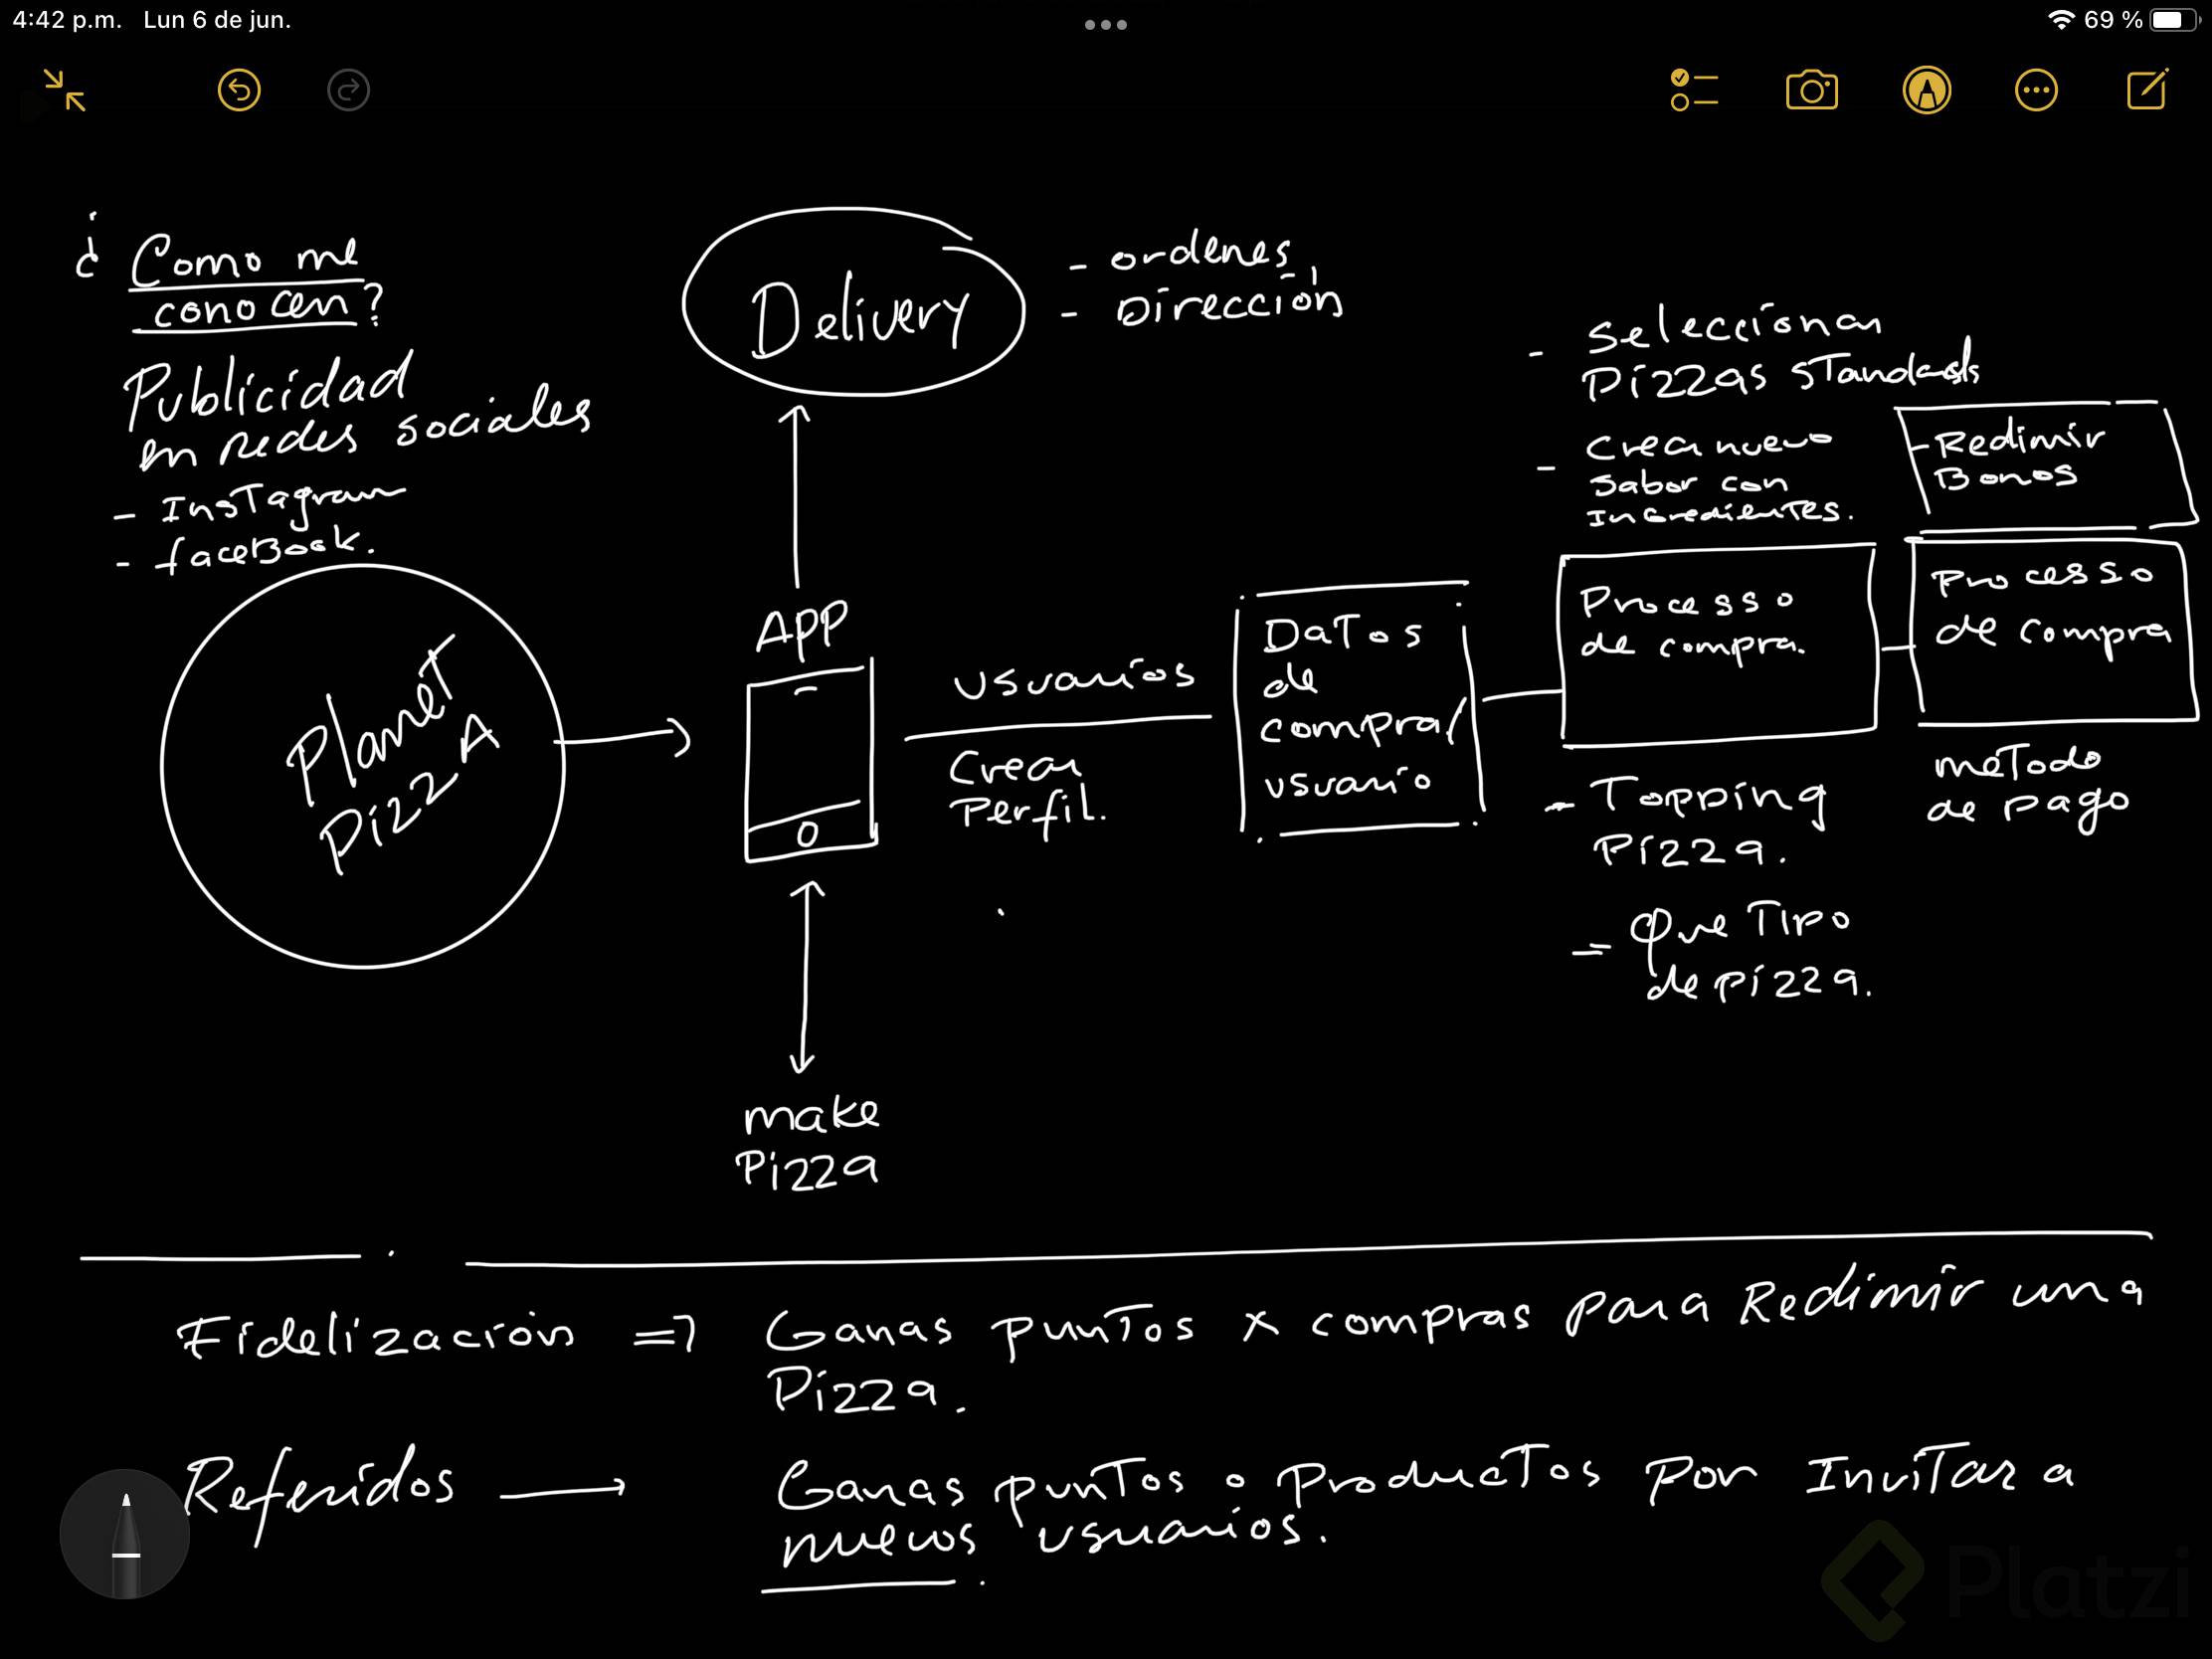 4:42 p.m. Lun 6 de jun.
69 %
¿ Como me
conocen?
Publicidad
en redes sociales
- InsTagram
- faceBook.
Delivery
- ordenes
- Dirección
- Seleccionar
Pizzas sTandards
- Crear nuevo
Sabor con
IngredienTes.
- Redimir
Bonos
PlaneT
PizzA
APP
usuarios
Crear
Perfil.
DaTos
de
compra/
usuario
Processo
de compra.
Processo
de compra
- Topping
Pizza.
= Que Tipo
de pizza.
meTodo
de pago
make
Pizza
Fidelización => Ganas punTos x compras para Redimir una
Pizza.
Referidos → Ganas punTos o ProducTos por InviTar a
nuevos usuarios.
Platzi